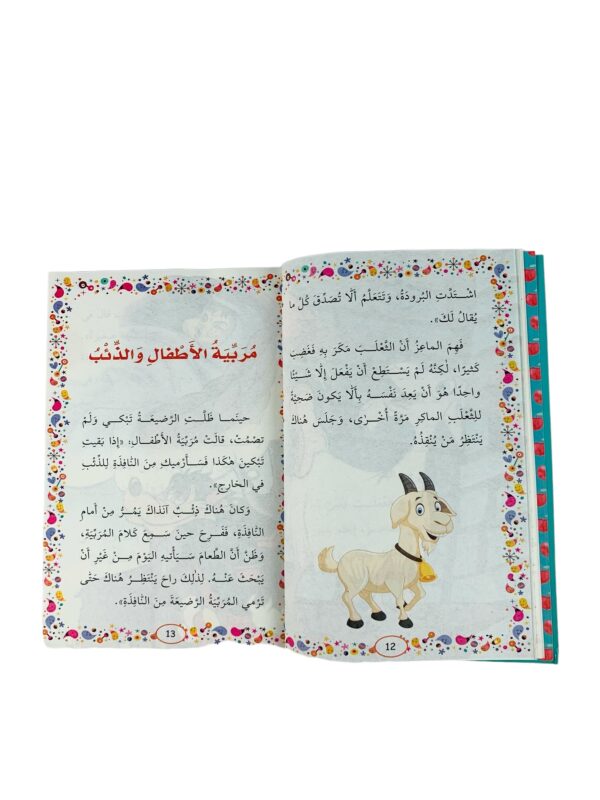 اشْتَدَّتِ البُرودَةُ، وَتَتَعَلَّمُ أَلَّا تُصَدِّقَ كُلَّ ما
يُقالُ لَكَ».
فَهِمَ الماعِزُ أَنَّ الثَّعْلَبَ مَكَرَ بِهِ فَغَضِبَ
كَثيرًا، لَكِنَّهُ لَمْ يَسْتَطِعْ أَنْ يَفْعَلَ إِلَّا شَيْئًا
واحِدًا هُوَ أَنْ يَعِدَ نَفْسَهُ بِأَلَّا يَكونَ ضَحِيَّةً
لِلثَّعْلَبِ الماكِرِ مَرَّةً أُخْرى، وَجَلَسَ هُناكَ
يَنْتَظِرُ مَنْ يُنْقِذُهُ.
12
مُرَبِّيَةُ الأَطْفالِ وَالذِّئْبُ
حينَما ظَلَّتِ الرَّضيعَةُ تَبْكي وَلَمْ
تَصْمُتْ، قالَتْ مُرَبِّيَةُ الأَطْفالِ: «إِذا بَقيتِ
تَبْكينَ هَكَذا فَسَأَرْميكِ مِنَ النَّافِذَةِ لِلذِّئْبِ
في الخارِجِ».
وَكانَ هُناكَ ذِئْبٌ آنَذاكَ يَمُرُّ مِنْ أَمامِ
النَّافِذَةِ، فَفَرِحَ حينَ سَمِعَ كَلامَ المُرَبِّيَةِ،
وَظَنَّ أَنَّ الطَّعامَ سَيَأْتيهِ اليَوْمَ مِنْ غَيْرِ أَنْ
يَبْحَثَ عَنْهُ. لِذَلِكَ راحَ يَنْتَظِرُ هُناكَ حَتَّى
تَرْمي المُرَبِّيَةُ الرَّضيعَةَ مِنَ النَّافِذَةِ».
13